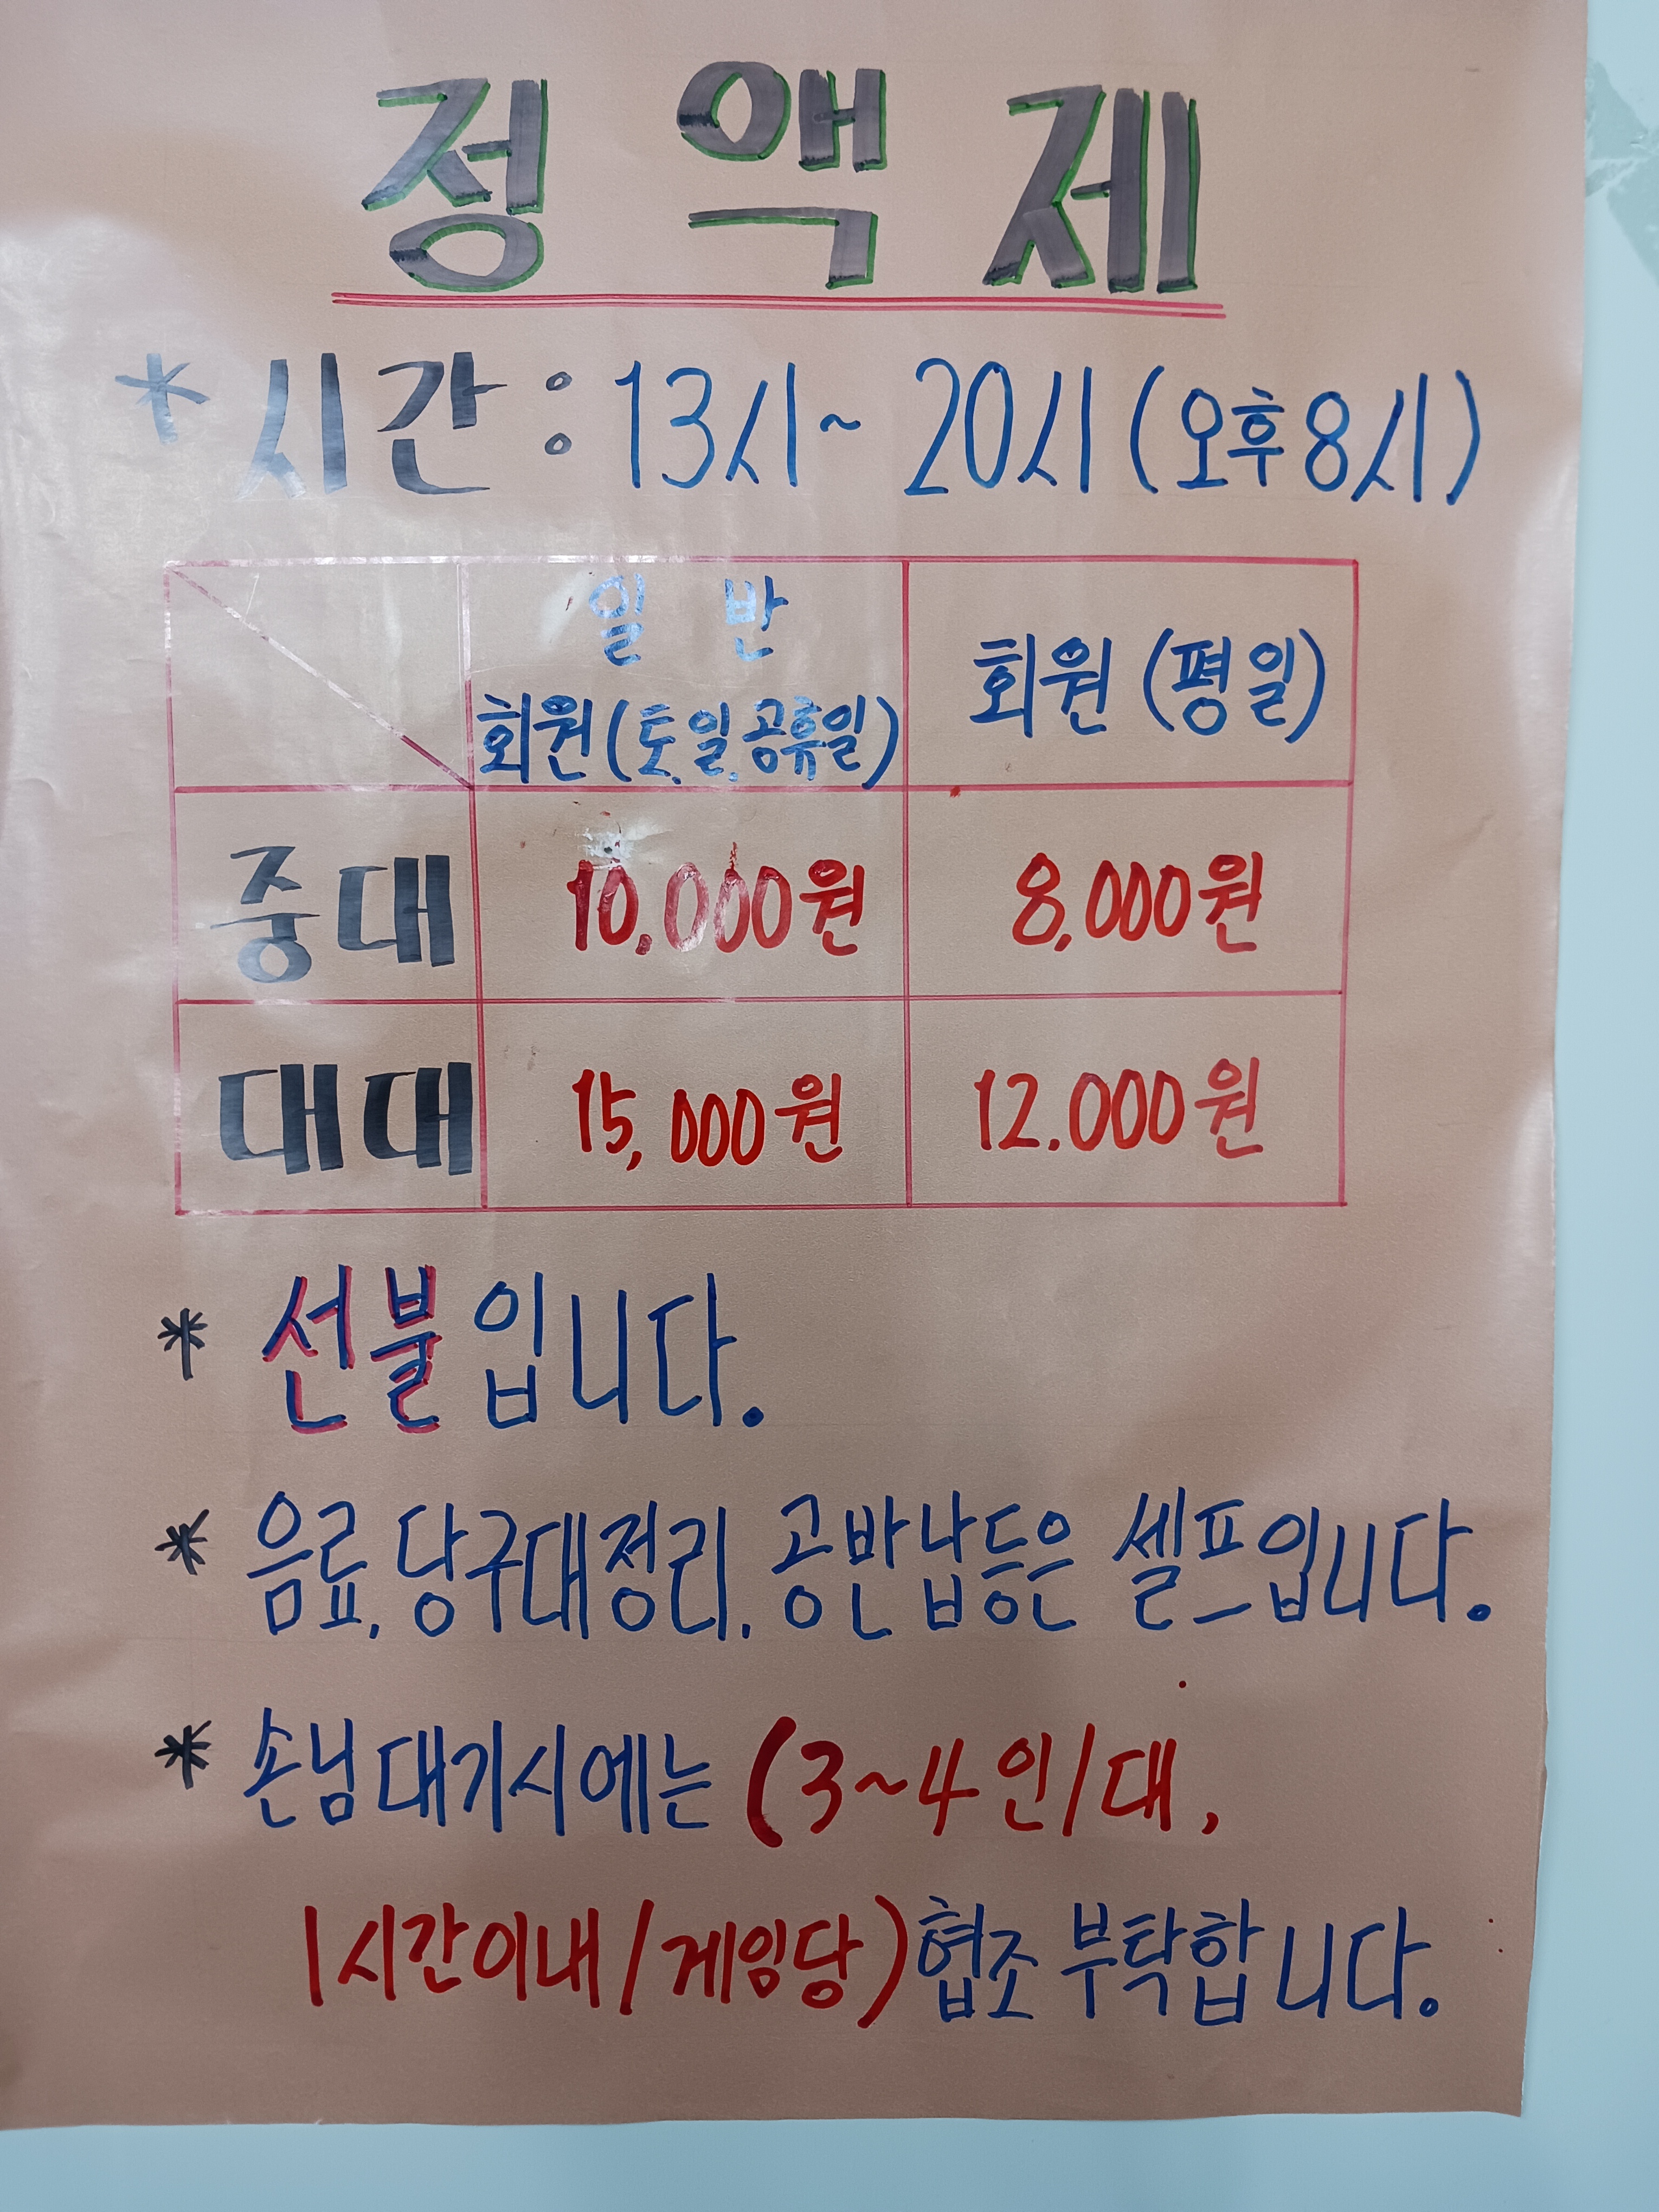 정액제
* 시간 : 13시~ 20시 (오후 8시)
일 반
회원 (토.일.공휴일)
회원 (평일)
중대 10,000원 8,000원
대대 15,000원 12.000원
* 선불입니다.
* 음료. 당구대정리. 공반납등은 셀프입니다.
* 손님대기시에는 (3~4인/대,
1시간이내/게임당) 협조 부탁합니다.